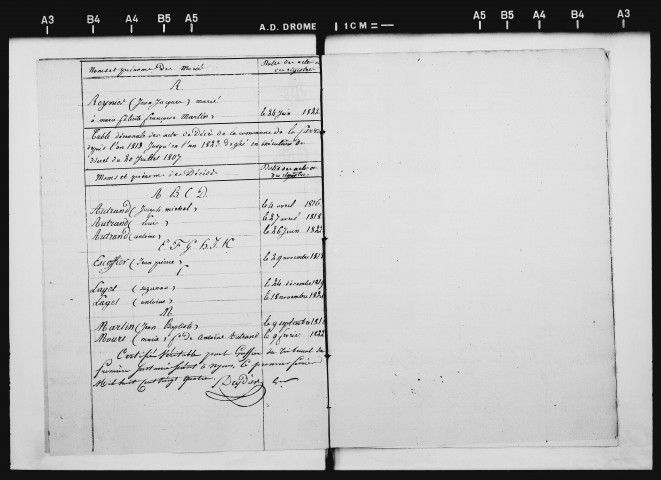 A3 B4 A4 B5 A5 A.D. DROME 1 CM A5 B5 A4 B4 A3
Noms et prénoms des Mariés Dattes des actes ou des registres
R
Reynier (Jean Jacques) marié
à marie françoise Martin le 24 Juin 1822
Table décennale des actes de Décès de la commune de la
depuis l'an 1813 Jusqu'en l'an 1822 en exécution du
décret du 20 Juillet 1807
Noms et prénoms des Décédés Dattes des actes ou des registres
A B C D
Autrand (Joseph michel) le 4 avril 1816
Autrand le 27 avril 1818
Autrand (antoine) le 26 Juin 1822
E F G h I K
Escoffier (Jean pierre) le 29 novembre
L
Laget le 24 décembre
Laget (antoine) le 18 novembre
M
Martin (Jean Baptiste) le 9 septembre
Mours (marie) f.e de Antoine Autrand le 9 février 1822
Certifié Véritable par le Greffier du Tribunal de
première Instance séant à nyons, le premier février
Mil huit cent vingt quatre Deydier